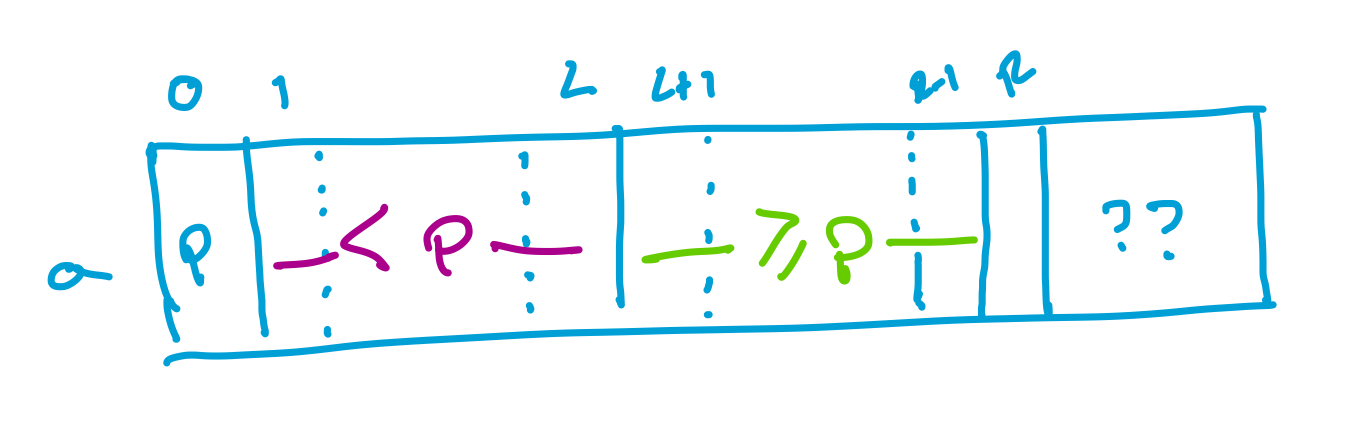 0 1 L L+1 R-1 R
a p < p ≥ p ??